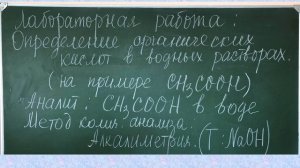 Лабораторная работа:
Определение органических
кислот в водных растворах.
(на примере CH₃COOH)
Аналит: CH₃COOH в воде
Метод колич. анализа:
Алкалиметрия. (Т: NaOH)